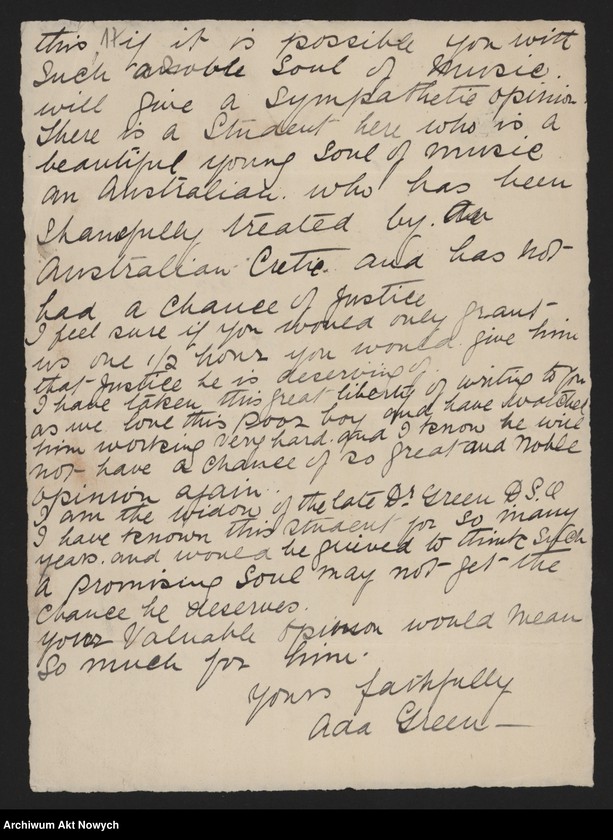 this, if it is possible you with
Such a Noble Soul of Music.
will give a Sympathetic opinion
There is a Student here who is a
beautiful young Soul of music
an Australian. who has been
Shamefully treated by. An
Australian Cretic. and has not
had a chance of Justice
I feel sure if you would only grant
us one 1/2 hour you would give him
that Justice he is deserving of.
I have taken this great liberty of writing to you
as we love this poor boy and have watched
him working very hard. and I know he will
not have a chance of so great and Noble
opinion again.
I am the widow of the late Dr Green D.S.O
I have known this student for so many
years. and would be grieved to think Such
a promising Soul may not get the
chance he deserves.
your Valuable opinion would mean
So much for him.
Yours faithfully
Ada Green
Archiwum Akt Nowych